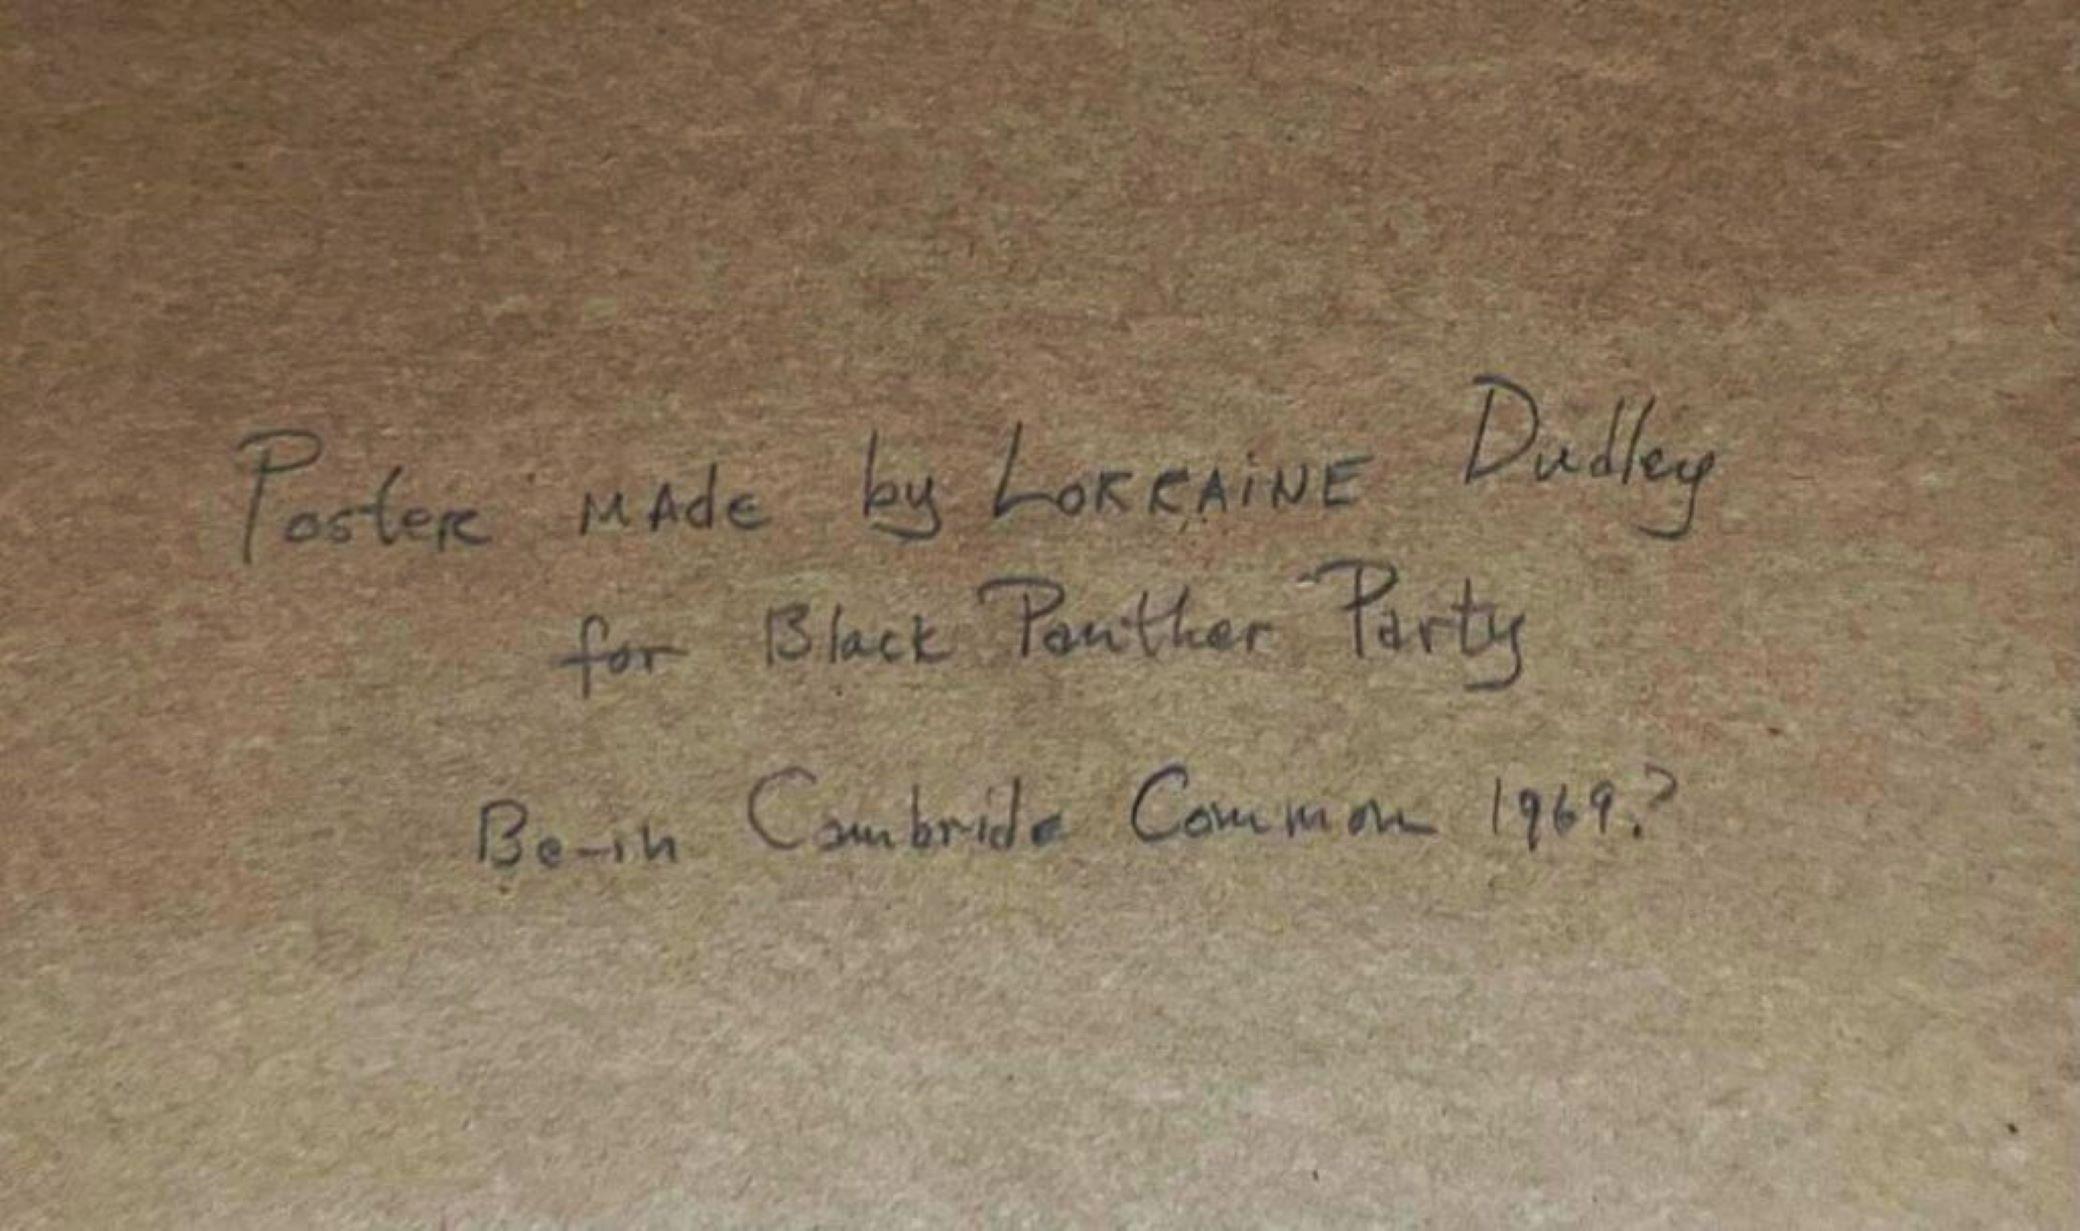 Poster MAde by LORRAiNE Dudley
for Black Panther Party
Be-in Cambride Common 1969?